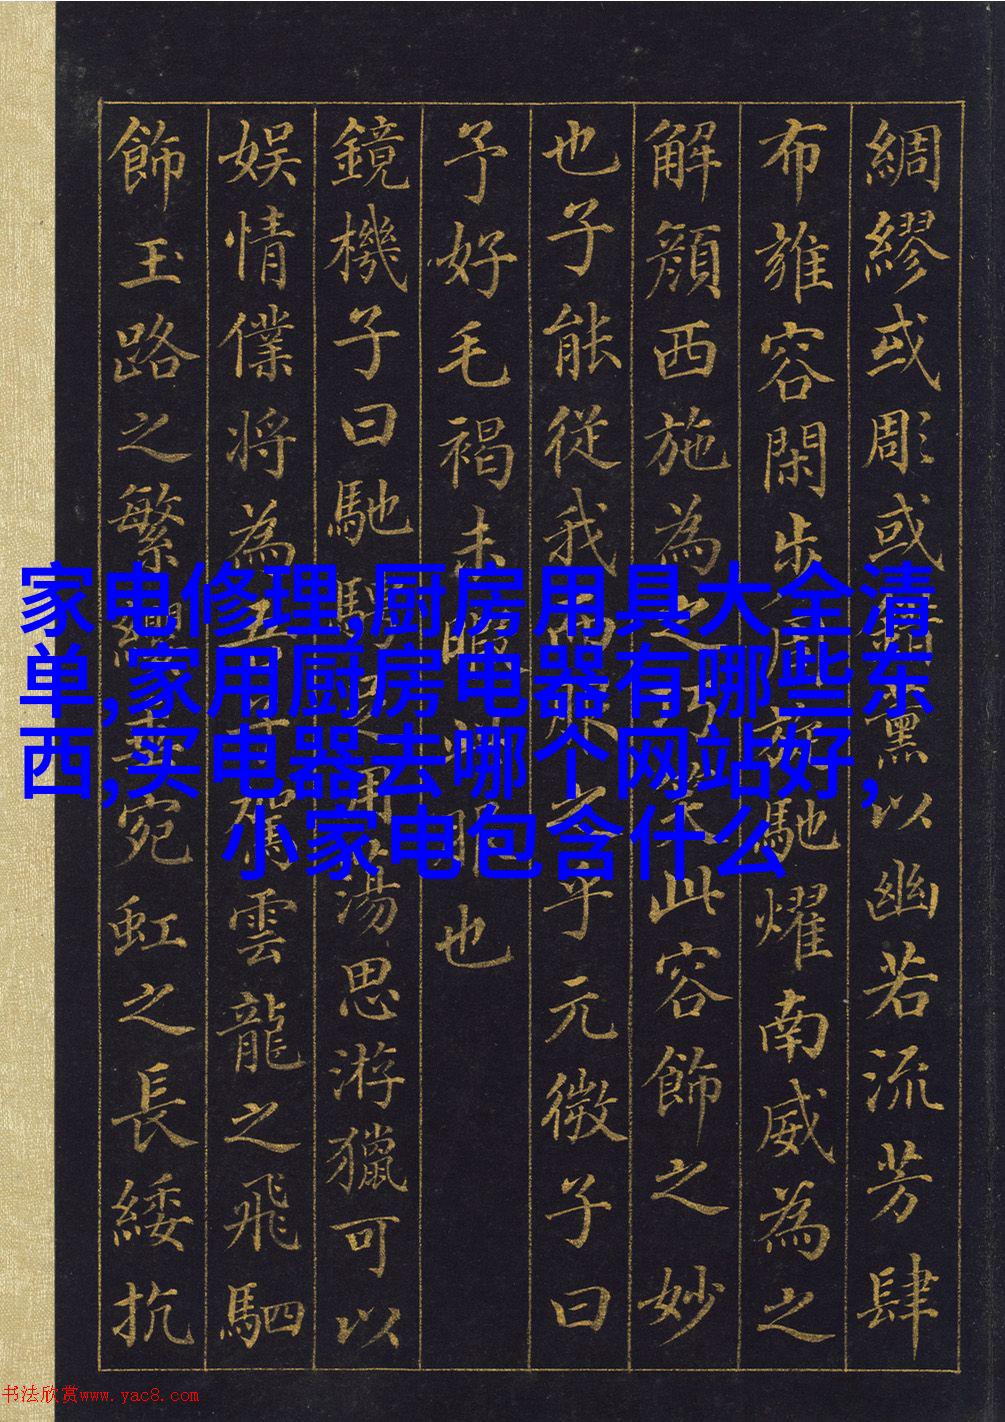 綢繆或彫或薰以幽若流芳肆
布雍容閑步周旋馳耀南威為之
解顏西施為之巧笑此容飾之妙
也子能從我而服之乎元微子曰
予好毛褐未暇此服也
鏡機子曰馳騁足用蕩思游獵可以
娛情僕將為吾子駕雲龍之飛駟
飾玉路之繁纓垂宛虹之長綏抗
家电修理,厨房用具大全清
单,家用厨房电器有哪些东
西,买电器去哪个网站好,
小家电包含什么
书法欣赏www.yac8.com